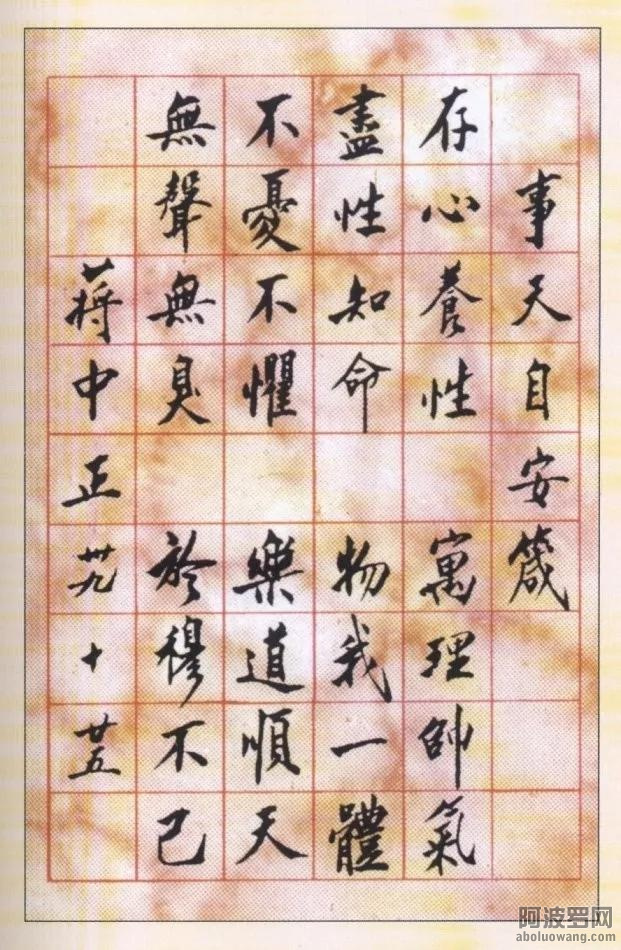 事天自安箴
存心養性 寓理帥氣
盡性知命 物我一體
不憂不懼 樂道順天
無聲無臭 於穆不已
蔣中正 卅九 十 廿五
阿波罗网
aboluowang.com